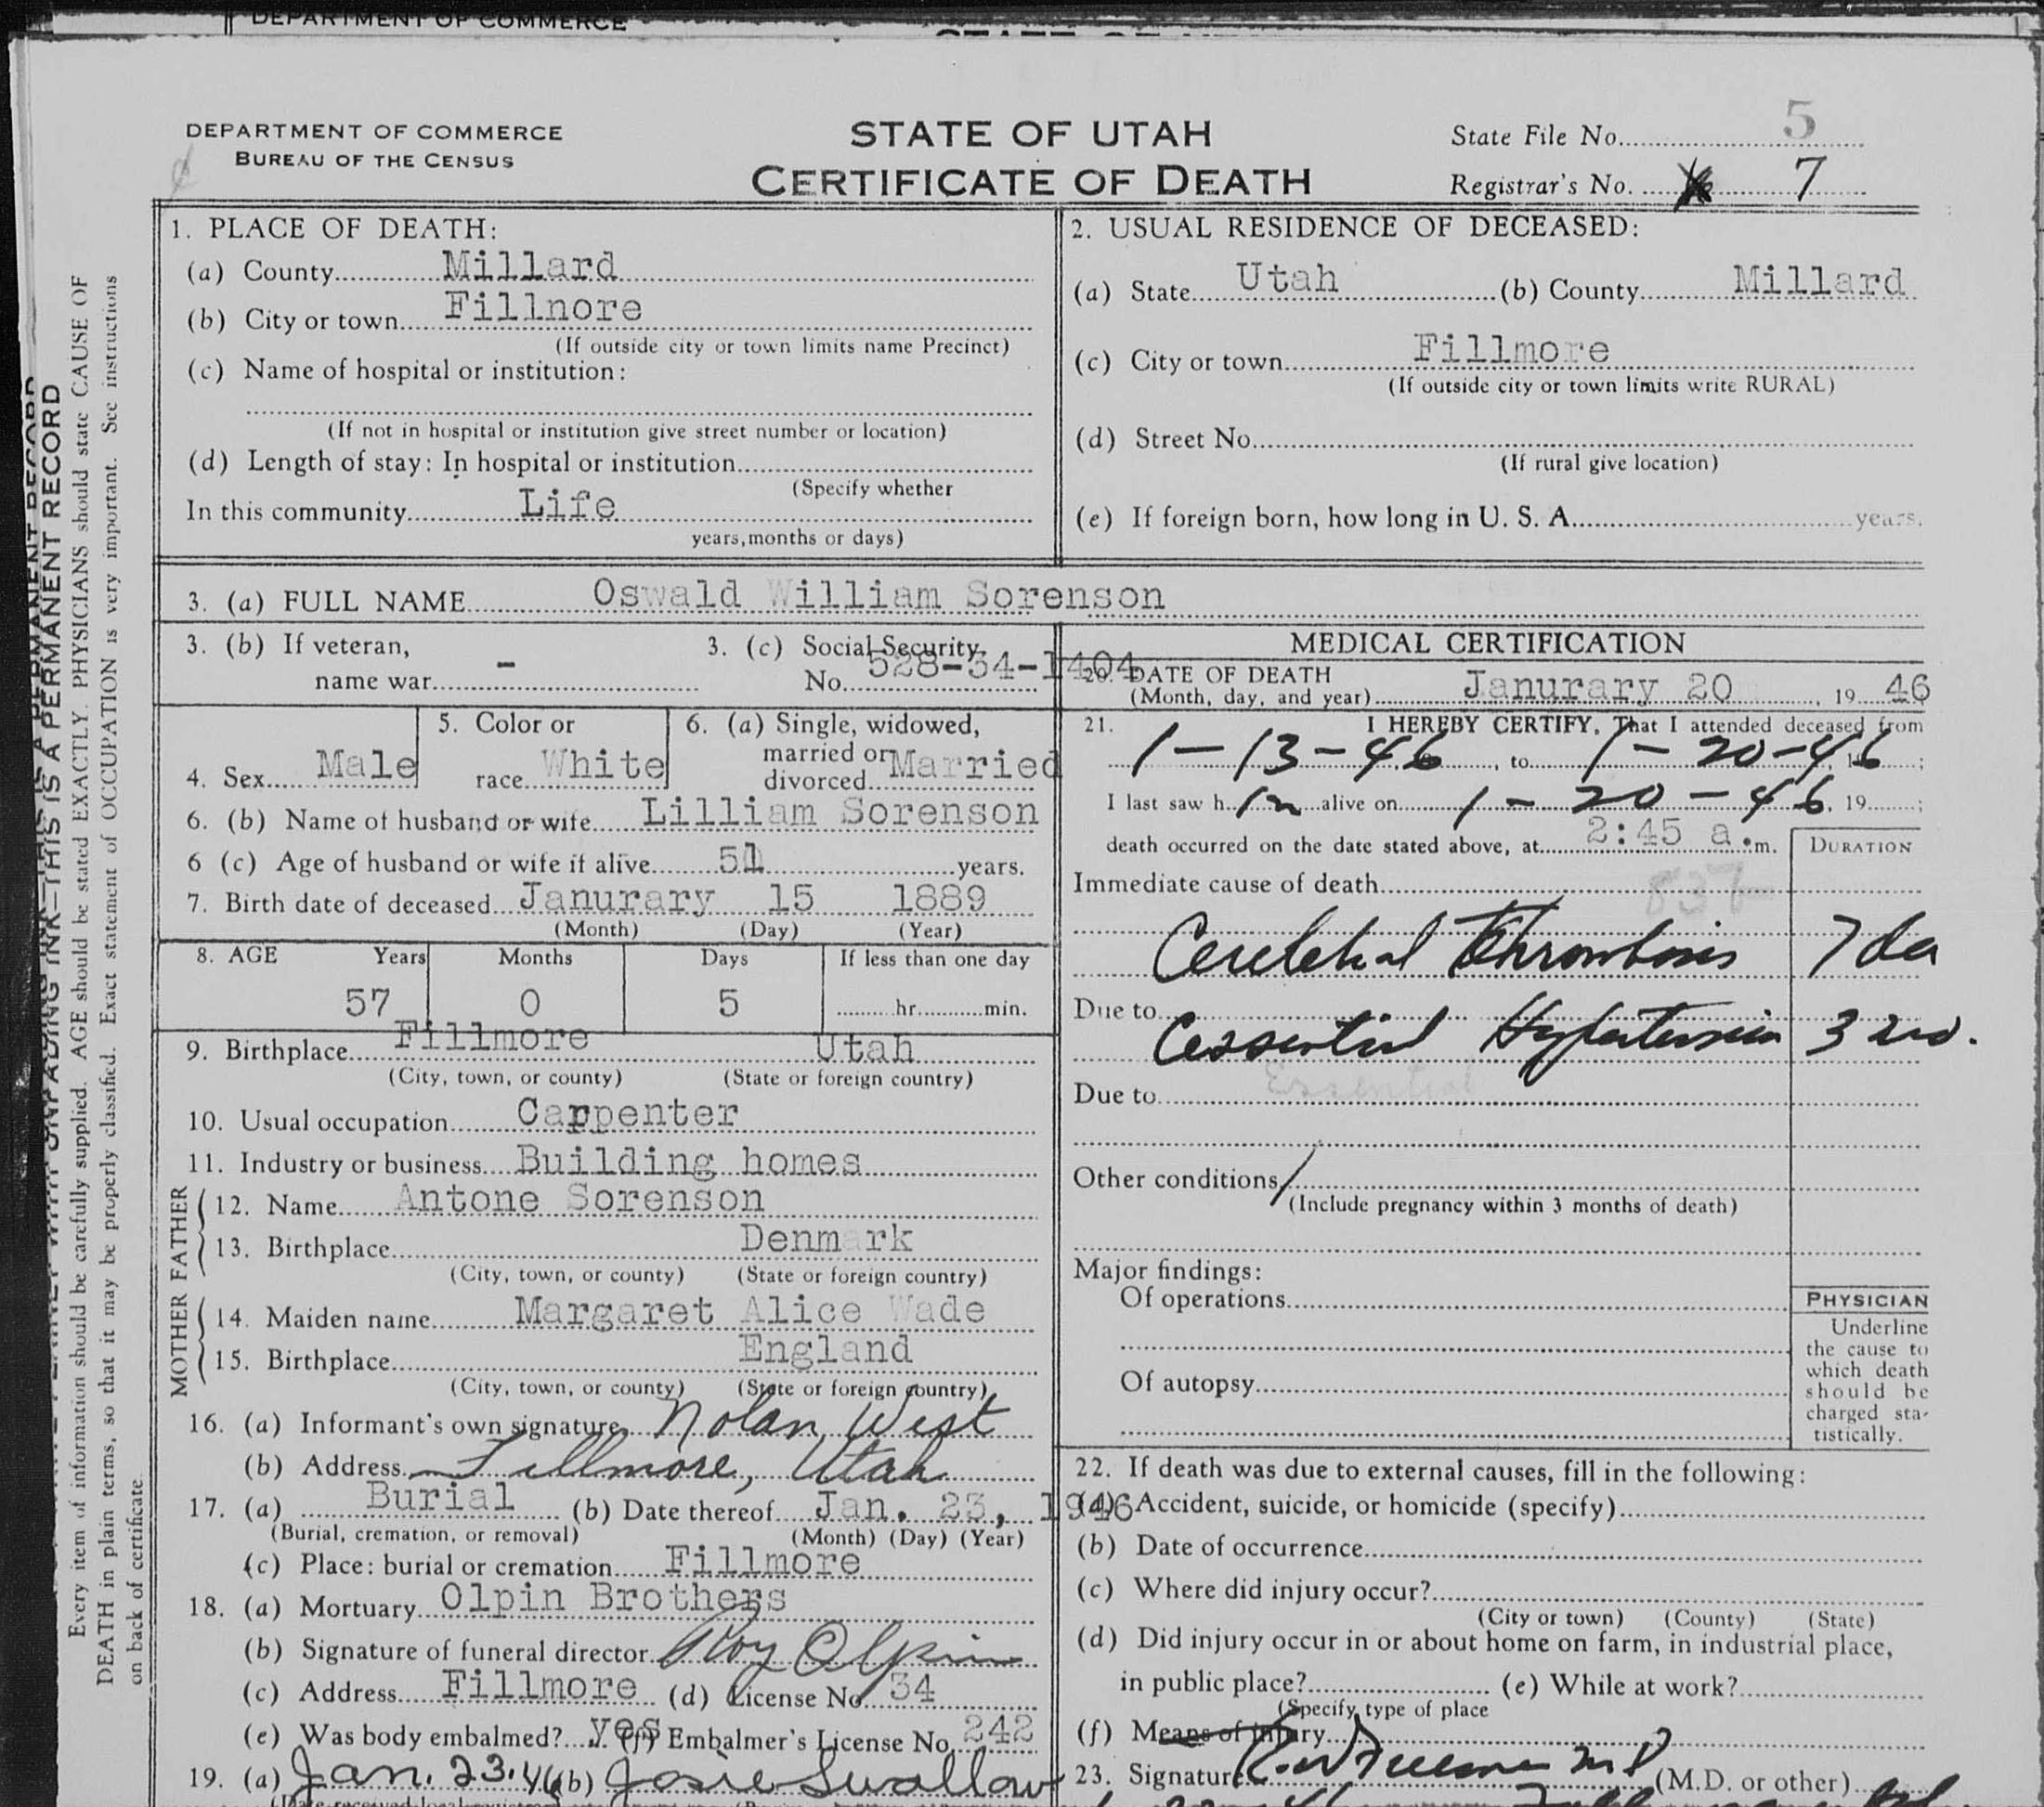 DEPARTMENT OF COMMERCE
DEPARTMENT OF COMMERCE
BUREAU OF THE CENSUS
STATE OF UTAH
CERTIFICATE OF DEATH
State File No. 5
Registrar's No. 7
THIS IS A PERMANENT RECORD
Every item of information should be carefully supplied. AGE should be stated EXACTLY. PHYSICIANS should state CAUSE OF
DEATH in plain terms, so that it may be properly classified. Exact statement of OCCUPATION is very important. See instructions
on back of certificate.
1. PLACE OF DEATH:
(a) County Millard
(b) City or town Fillnore
(If outside city or town limits name Precinct)
(c) Name of hospital or institution:
(If not in hospital or institution give street number or location)
(d) Length of stay: In hospital or institution
(Specify whether
In this community Life
years, months or days)
2. USUAL RESIDENCE OF DECEASED:
(a) State Utah (b) County Millard
(c) City or town Fillmore
(If outside city or town limits write RURAL)
(d) Street No.
(If rural give location)
(e) If foreign born, how long in U. S. A. years.
3. (a) FULL NAME Oswald William Sorenson
3. (b) If veteran,
name war -
3. (c) Social Security
No. 528-34-1404
4. Sex Male
5. Color or
race White
6. (a) Single, widowed,
married or
divorced Married
6. (b) Name of husband or wife Lilliam Sorenson
6 (c) Age of husband or wife if alive 51 years.
7. Birth date of deceased Janurary 15 1889
(Month) (Day) (Year)
8. AGE Years Months Days If less than one day
57 0 5 hr. min.
9. Birthplace Fillmore Utah
(City, town, or county) (State or foreign country)
10. Usual occupation Carpenter
11. Industry or business Building homes
FATHER
12. Name Antone Sorenson
13. Birthplace Denmark
(City, town, or county) (State or foreign country)
MOTHER
14. Maiden name Margaret Alice Wade
15. Birthplace England
(City, town, or county) (State or foreign country)
16. (a) Informant's own signature Nolan West
(b) Address Fillmore, Utah
17. (a) Burial (b) Date thereof Jan. 23, 1946
(Burial, cremation, or removal) (Month) (Day) (Year)
(c) Place: burial or cremation Fillmore
18. (a) Mortuary Olpin Brothers
(b) Signature of funeral director Roy Olpin
(c) Address Fillmore (d) License No. 34
(e) Was body embalmed? yes (f) Embalmer's License No. 242
19. (a) Jan. 23. 46 (b) Josie Swallow
MEDICAL CERTIFICATION
20. DATE OF DEATH
(Month, day, and year) Janurary 20, 19 46
21. I HEREBY CERTIFY, That I attended deceased from
1-13-46, to 1-20-46;
I last saw h im alive on 1-20-46, 19 ;
death occurred on the date stated above, at 2:45 a.m.
DURATION
Immediate cause of death
Cerebral Thrombosis 7 da
Due to
Cessential Hypertension
Essential
Due to
Other conditions
(Include pregnancy within 3 months of death)
Major findings:
Of operations
Of autopsy
PHYSICIAN
Underline
the cause to
which death
should be
charged sta-
tistically.
22. If death was due to external causes, fill in the following:
(a) Accident, suicide, or homicide (specify)
(b) Date of occurrence
(c) Where did injury occur?
(City or town) (County) (State)
(d) Did injury occur in or about home on farm, in industrial place,
in public place? (e) While at work?
(Specify type of place
(f) Means of injury
23. Signature (M.D. or other)